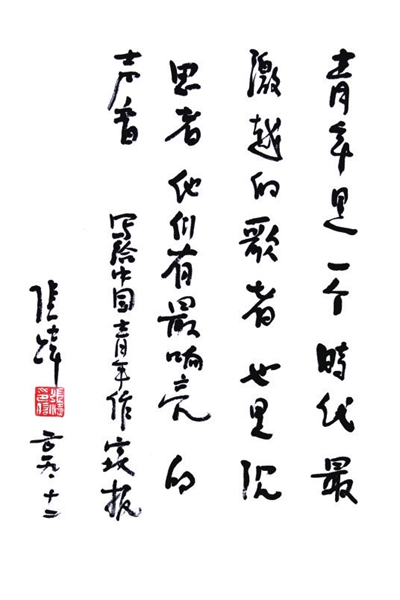 青年是一个時代最
激越的歌者 也是沉
思者 他们有最响亮的
声音
写给中国青年作家报
张炜
二〇一九.十二